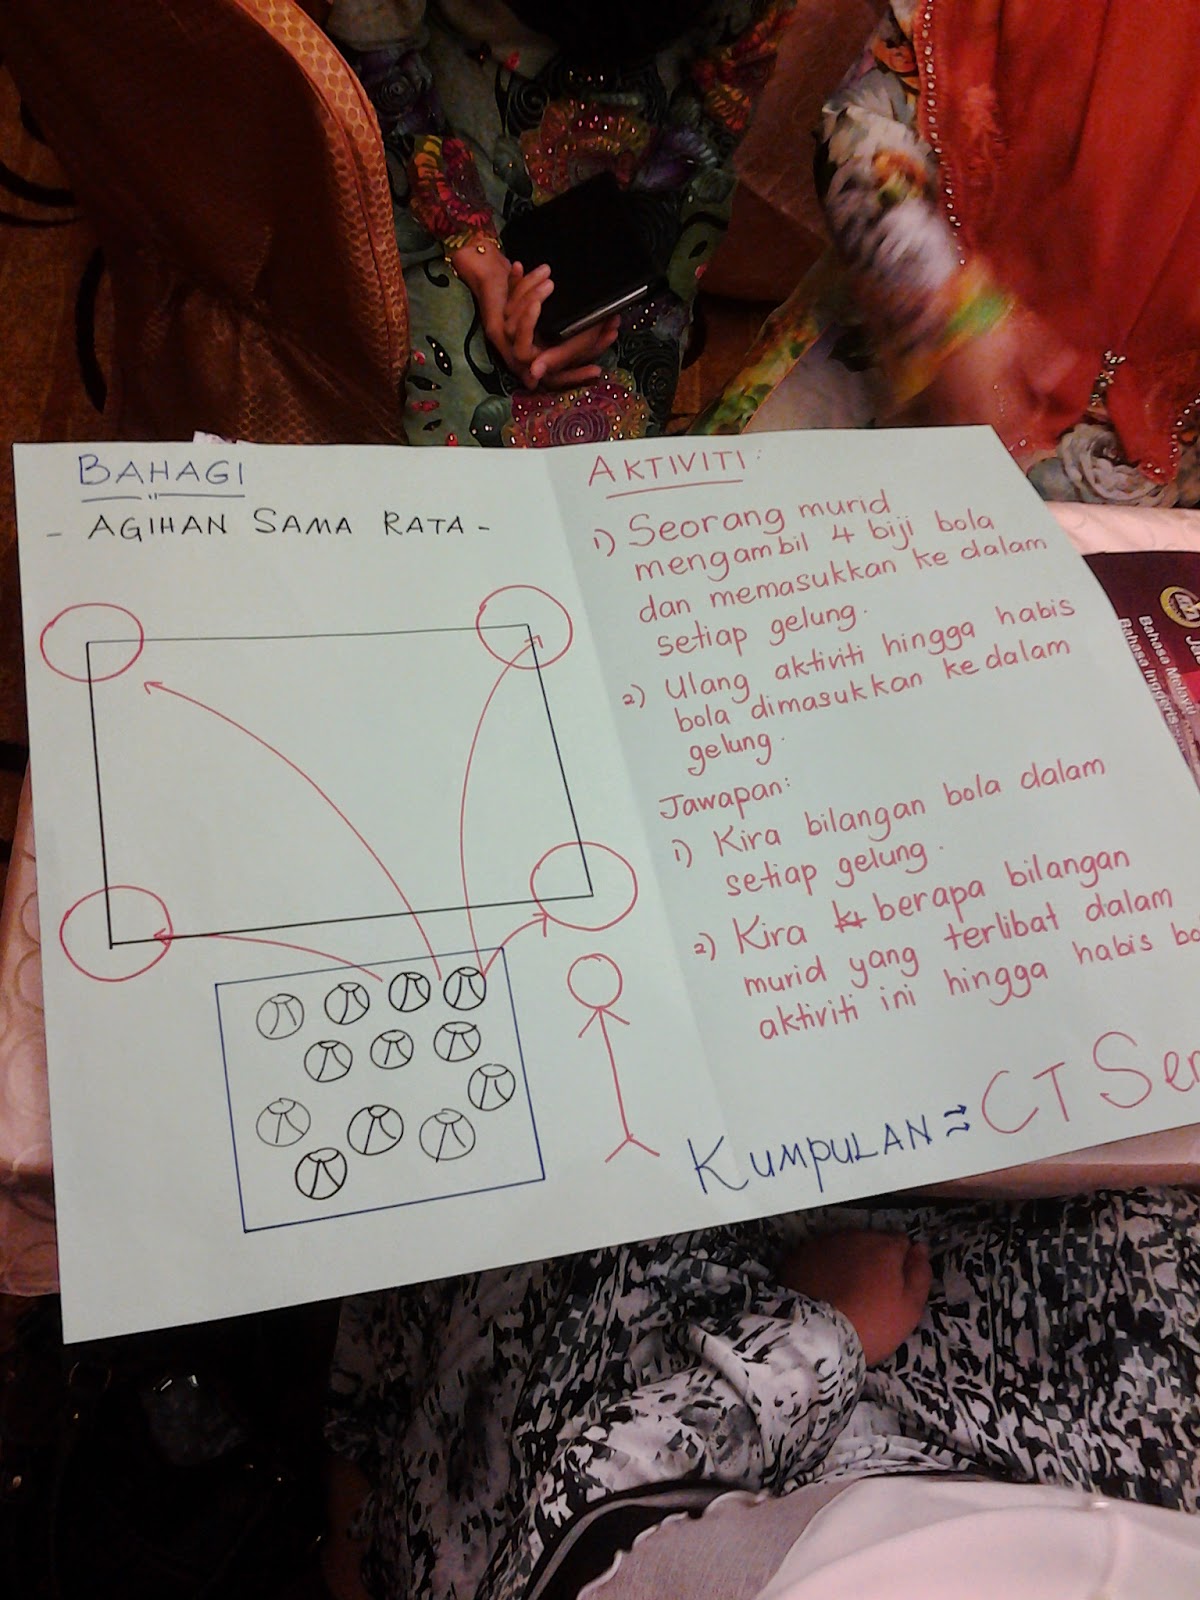 BAHAGI
- AGIHAN SAMA RATA -
AKTIVITI:
1) Seorang murid
mengambil 4 biji bola
dan memasukkan ke dalam
setiap gelung.
2) Ulang aktiviti hingga habis
bola dimasukkan kedalam
gelung.
Jawapan:
1) Kira bilangan bola dalam
setiap gelung.
2) Kira berapa bilangan
murid yang terlibat dalam
aktiviti ini hingga habis bo
KUMPULAN ⇒ CT Ser
Bahasa Melayu
Bahasa Inggeris